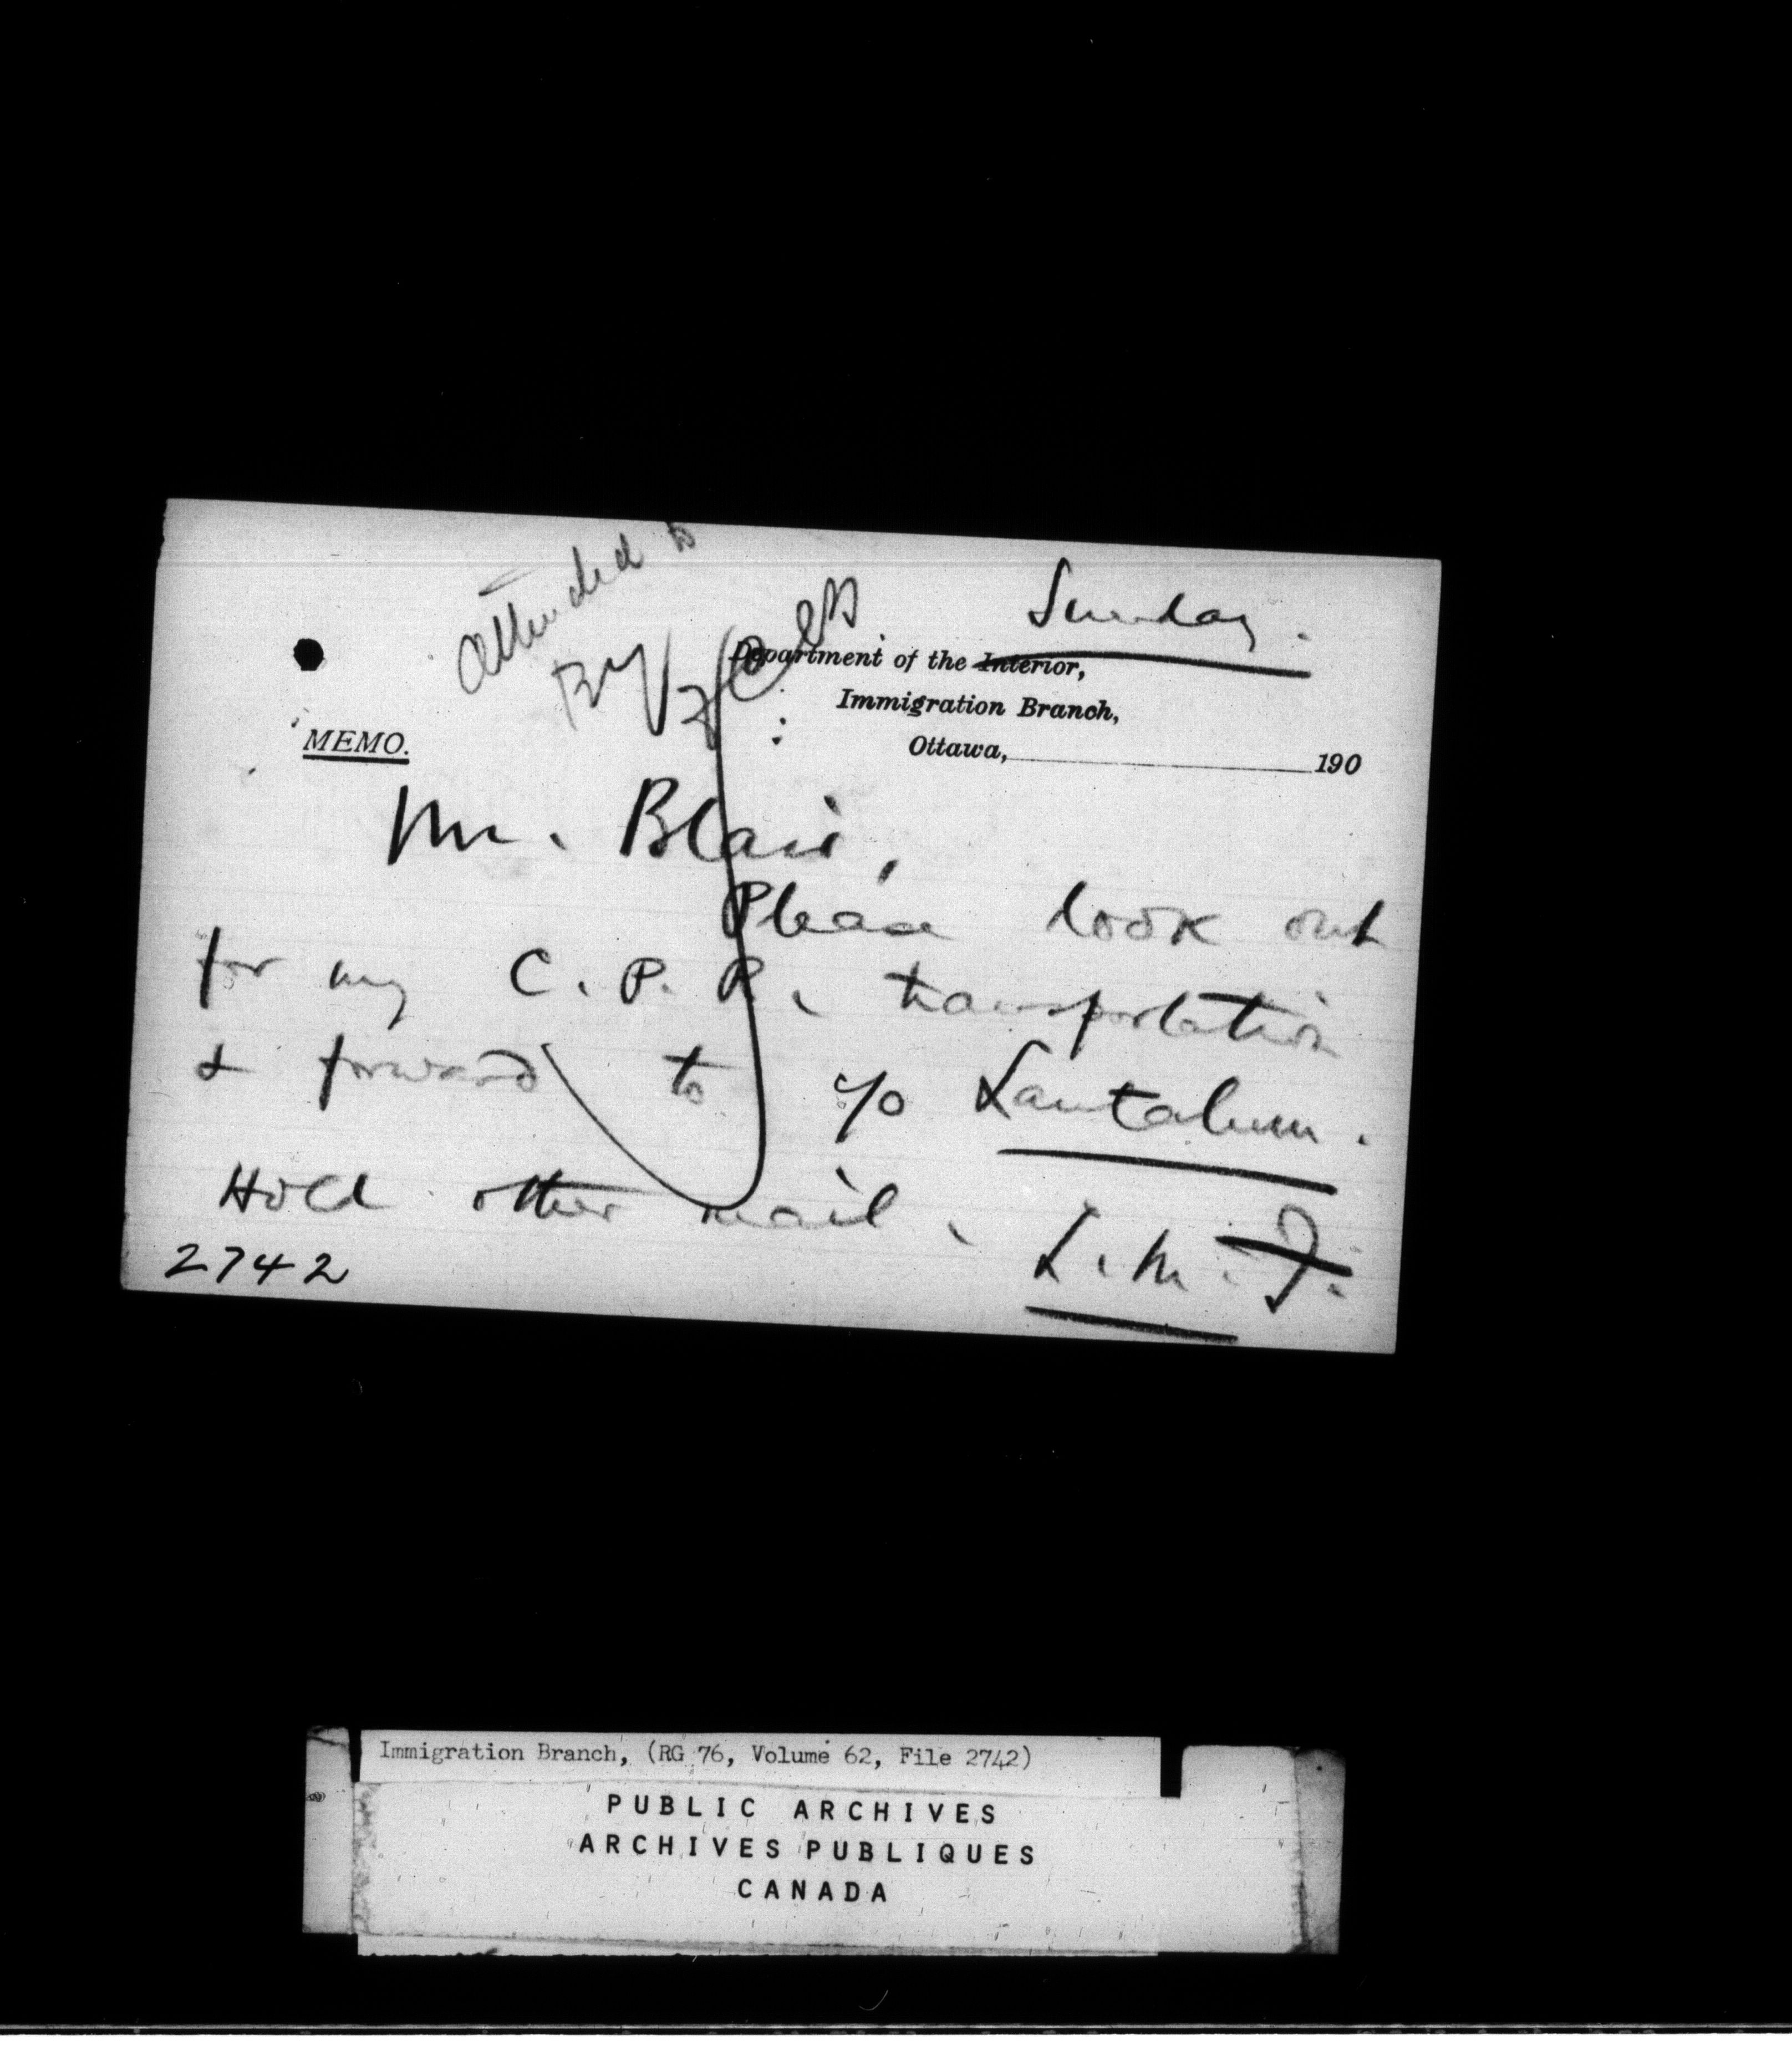 Attended to
By
Sunday.
Department of the Interior,
Immigration Branch,
MEMO.
Ottawa, 190
Mr. Blair,
Please look out
for my C. P. R. transportation
& forward to c/o Lantalum.
Hold other mail.
L. M. F.
2742
Immigration Branch, (RG 76, Volume 62, File 2742)
PUBLIC ARCHIVES
ARCHIVES PUBLIQUES
CANADA